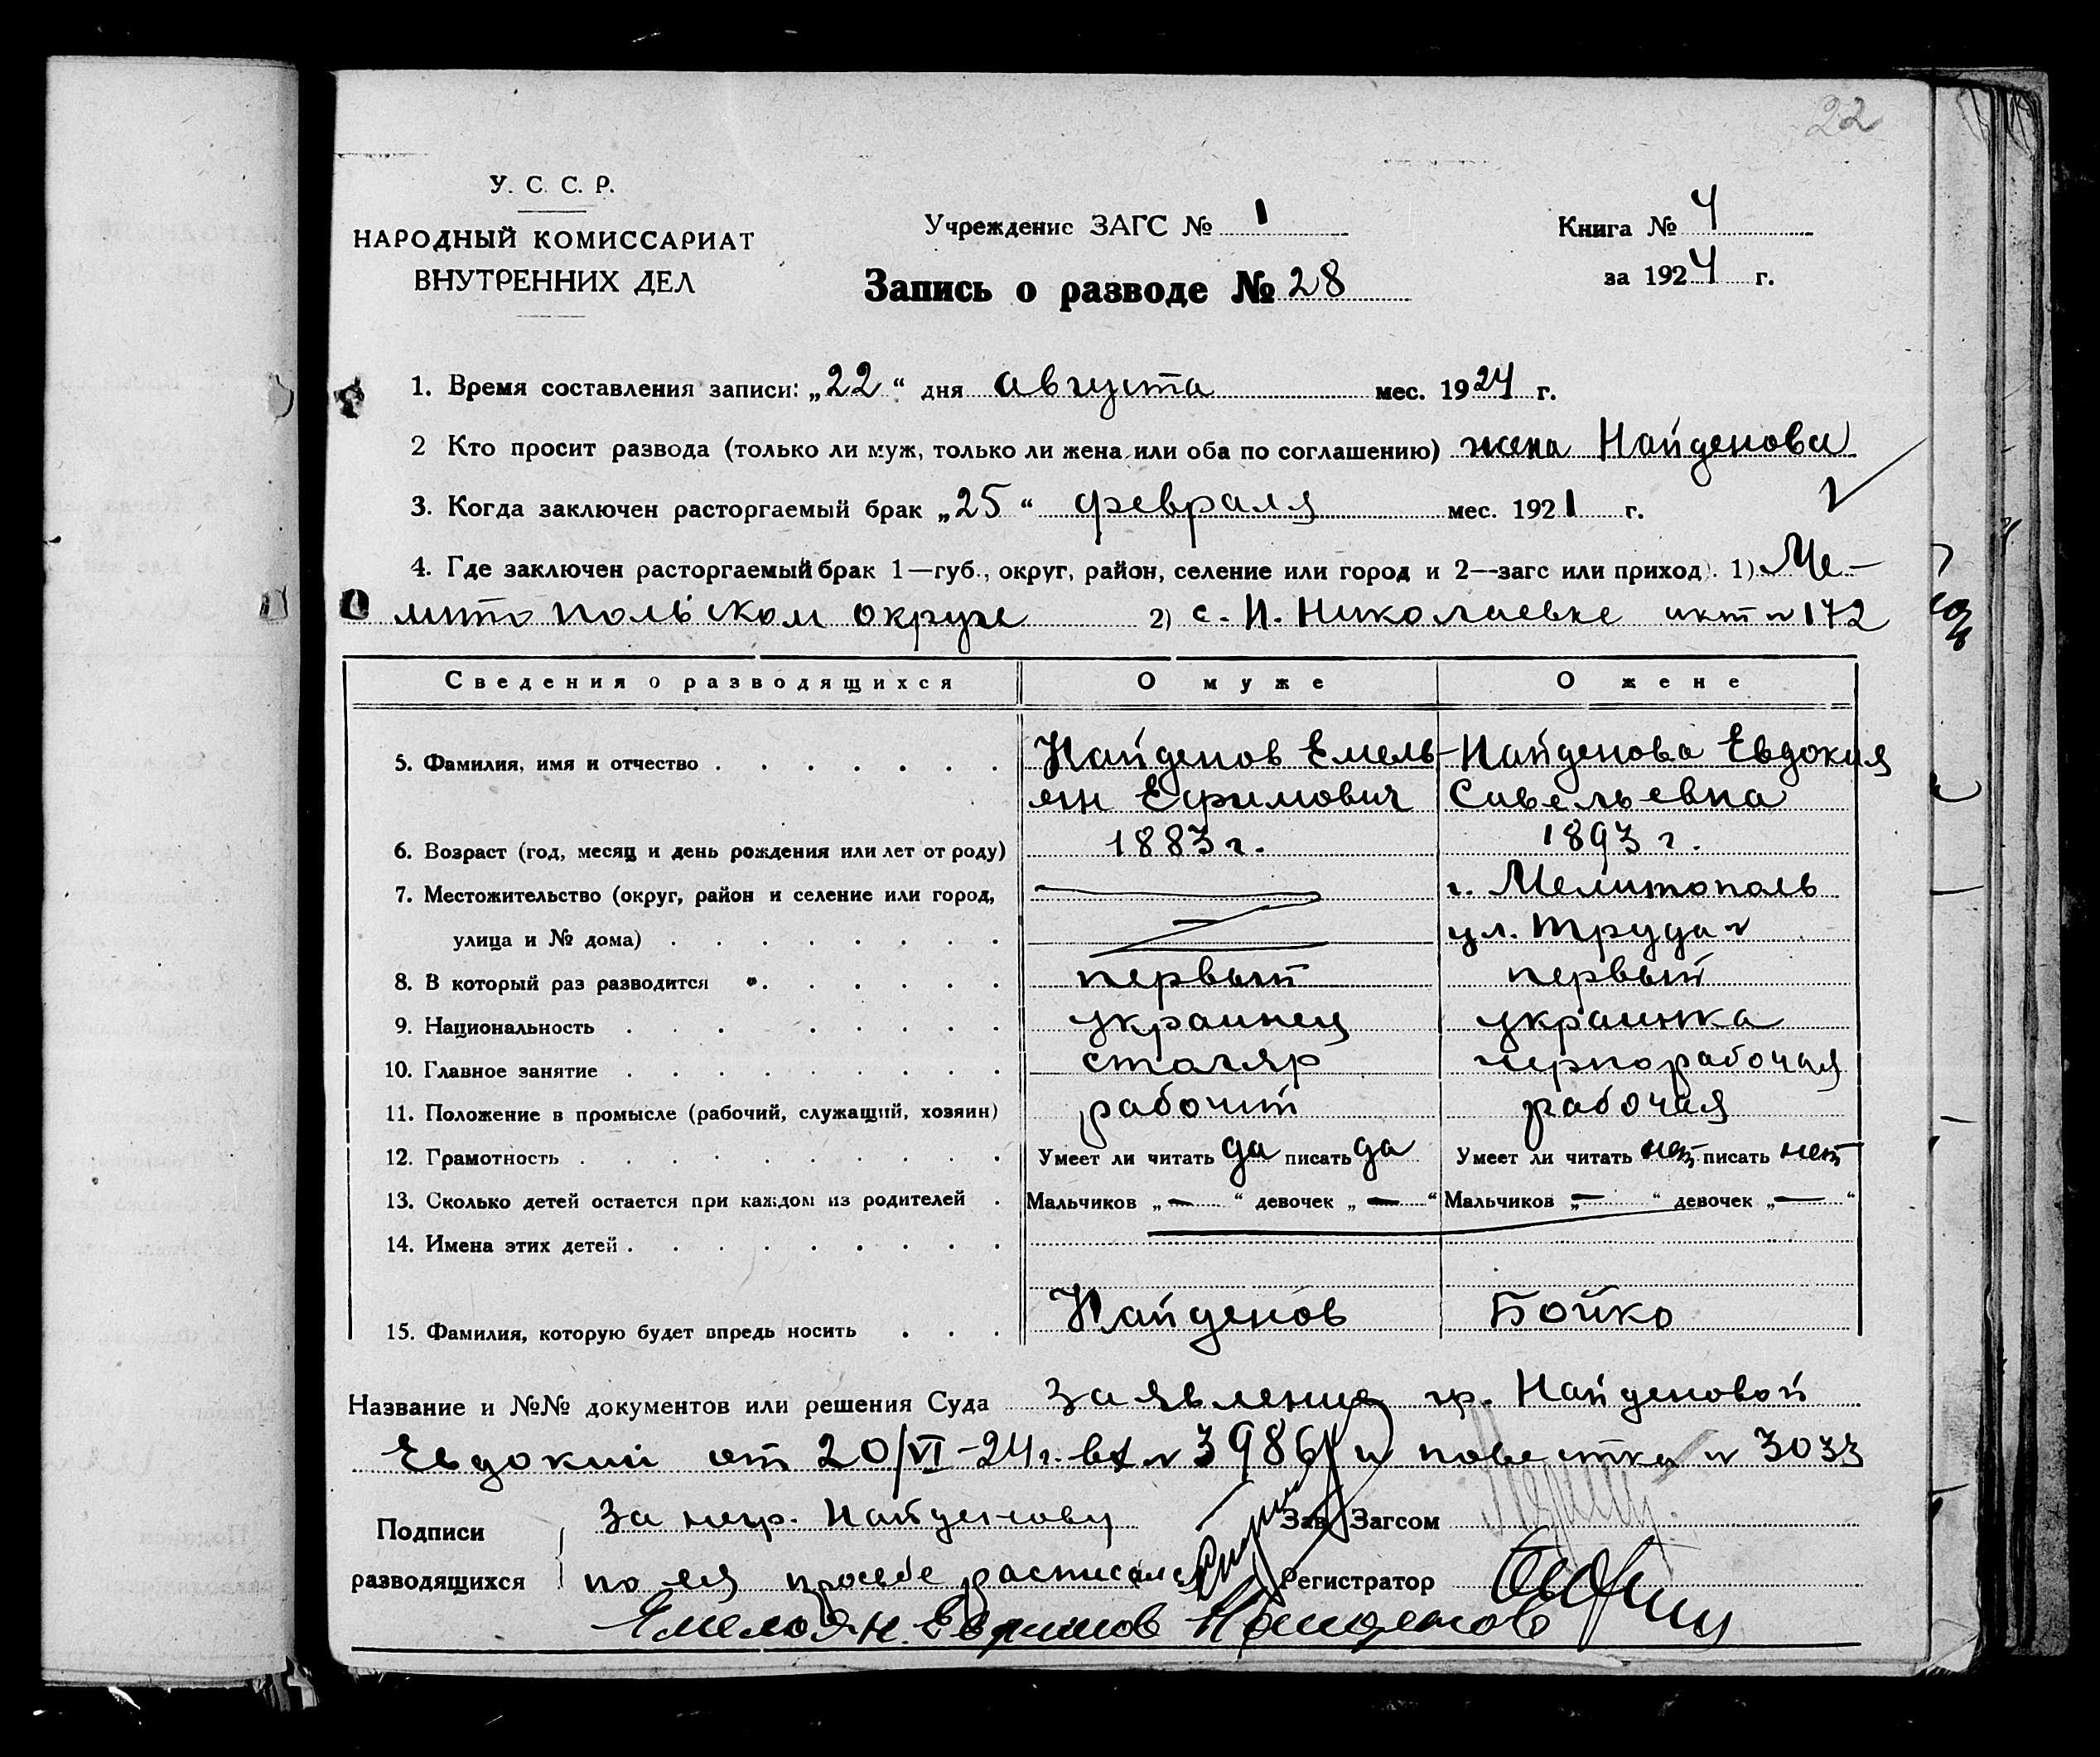 22
У. С. С. Р.
НАРОДНЫЙ КОМИССАРИАТ
ВНУТРЕННИХ ДЕЛ
Учреждение ЗАГС № 1
Запись о разводе № 28
Книга № 4
за 1924 г.
1. Время составления записи: „22“ дня августа мес. 1924 г.
2 Кто просит развода (только ли муж, только ли жена или оба по соглашению) жена Найденова
3. Когда заключен расторгаемый брак „25“ февраля мес. 1921 г.
4. Где заключен расторгаемый брак 1—губ., округ, район, селение или город и 2—загс или приход). 1) Ме-
литопольском округе 2) с. Н. Николаевке акт № 172
Сведения о разводящихся О муже О жене
5. Фамилия, имя и отчество Найденов Емель- Найденова Евдокия
ян Ефимович Савельевна
6. Возраст (год, месяц и день рождения или лет от роду) 1883 г. 1893 г.
7. Местожительство (округ, район и селение или город, г. Мелитополь
улица и № дома) ул. Труда №
8. В который раз разводится первый первый
9. Национальность украинец украинка
10. Главное занятие столяр чернорабочая
11. Положение в промысле (рабочий, служащий, хозяин) рабочий рабочая
12. Грамотность Умеет ли читать да писать да Умеет ли читать нет писать нет
13. Сколько детей остается при каждом из родителей Мальчиков „—“ девочек „—“ Мальчиков „—“ девочек „—“
14. Имена этих детей
15. Фамилия, которую будет впредь носить Найденов Бойко
Название и №№ документов или решения Суда Заявление гр. Найденовой
Евдокии от 20/VI-24 г. вх № 3986 и повестка № 3033
Подписи За негр. Найденову Зав. Загсом
разводящихся по ея прозбе расписался Регистратор
Емельян Ефимов Найденов